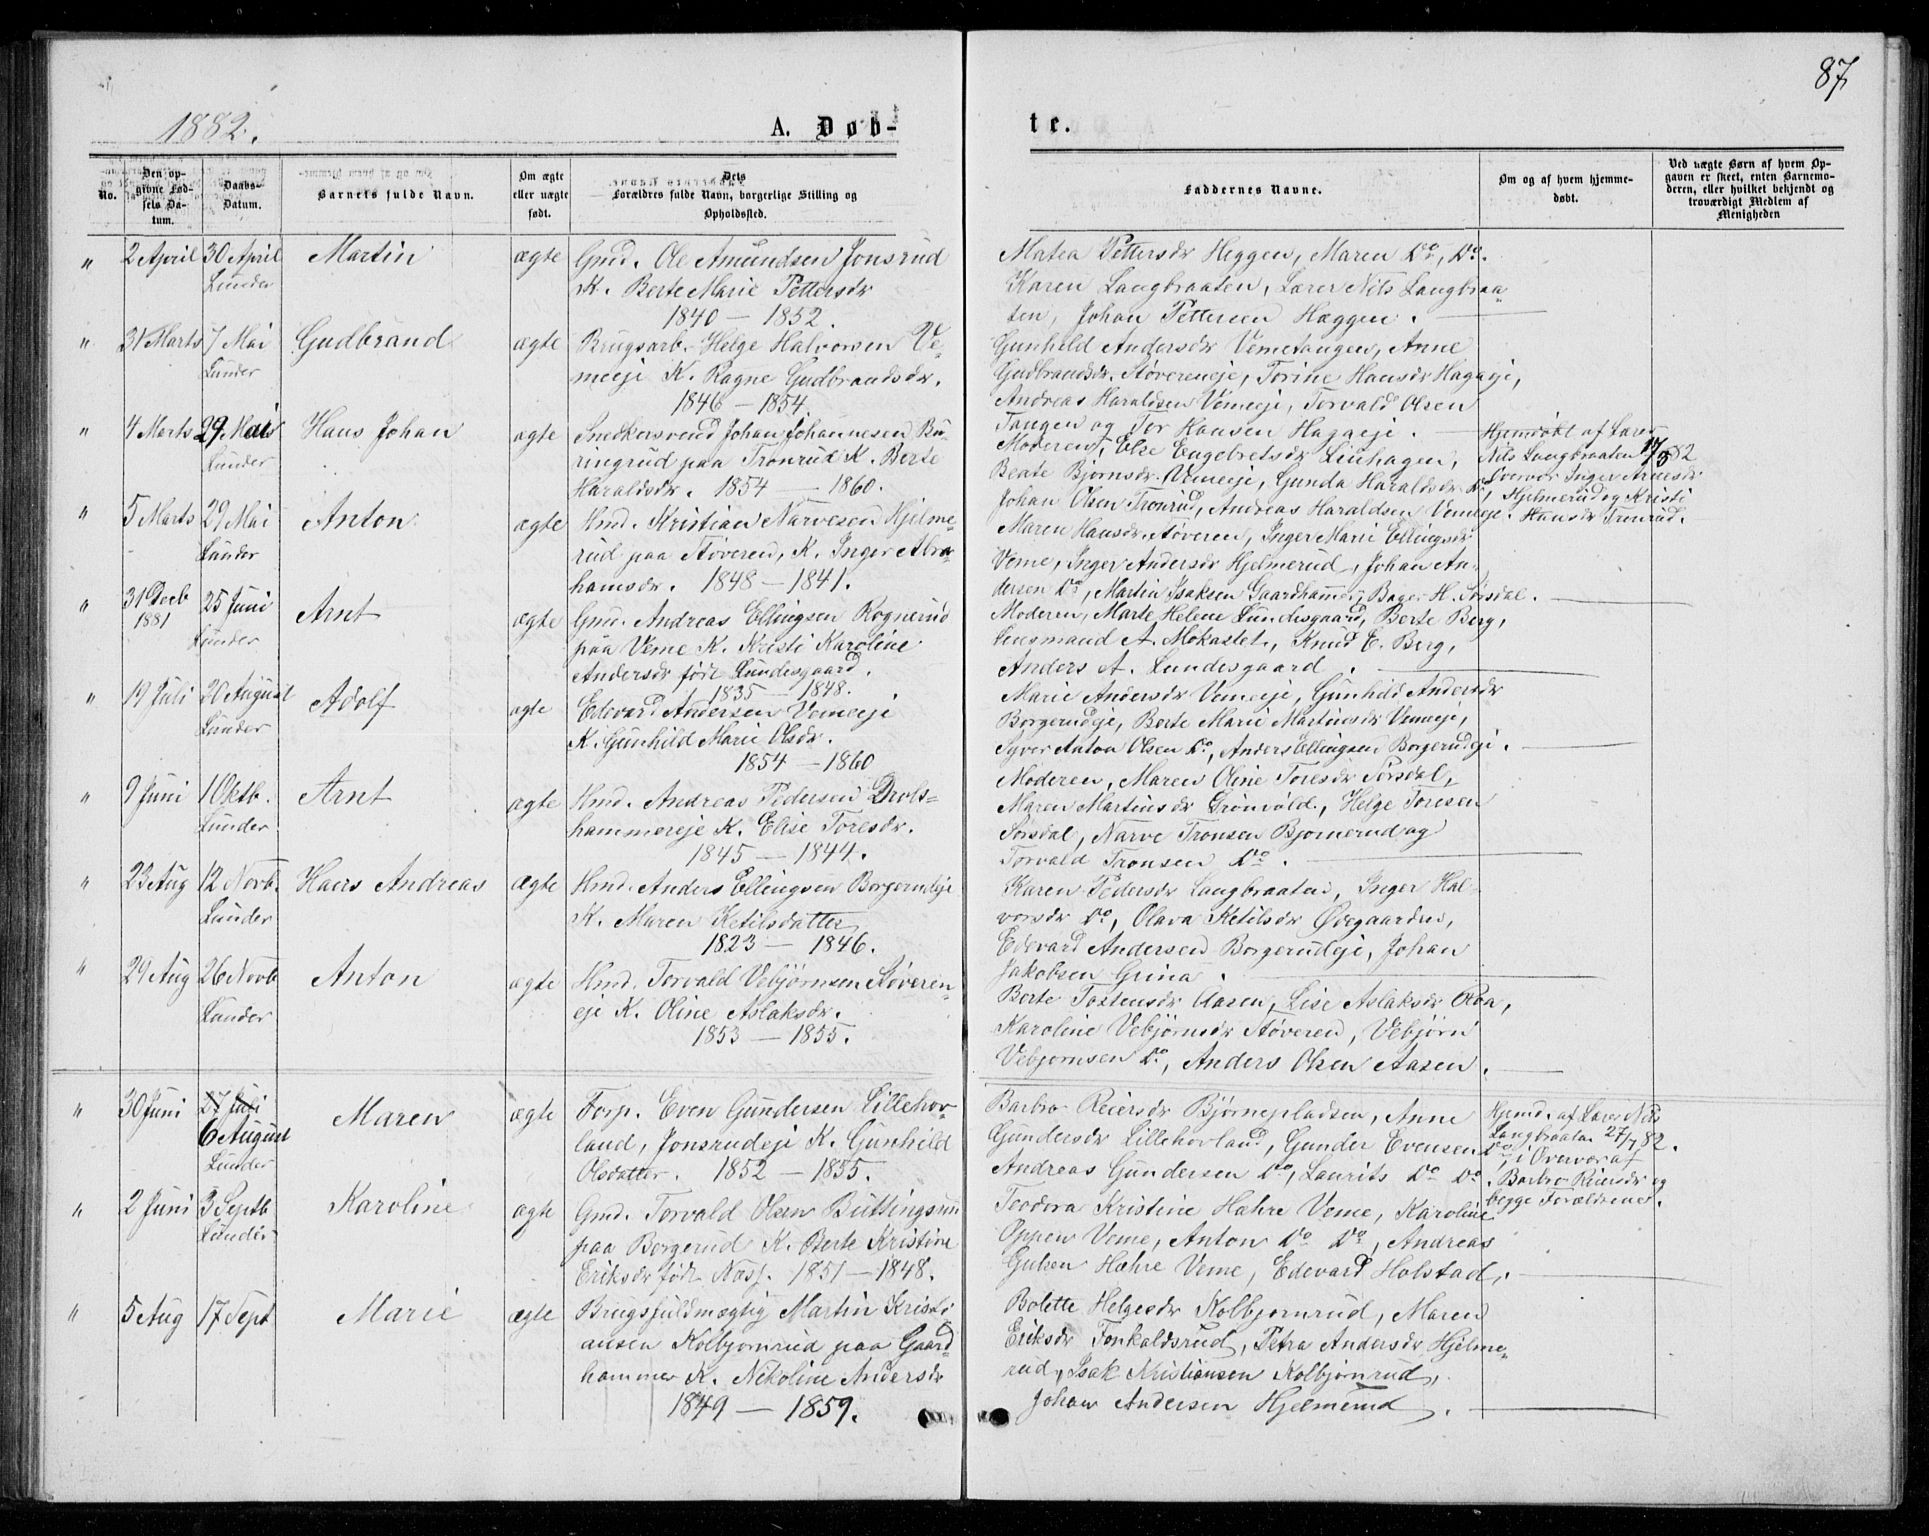 87
1882.
A. Døb-
te.
No.
Den op-
givne Fød-
sels Da-
tum.
Daabs-
Datum.
Barnets fulde Navn.
Om ægte
eller uægte
født.
Dets
Forældres fulde Navn, borgerlige Stilling og
Opholdssted.
Faddernes Navne.
Om og af hvem hjemme-
døbt.
Ved uægte Børn af hvem Op-
gaven er skeet, enten Barnemo-
deren, eller hvilket bekjendt og
troværdigt Medlem af
Menigheden
" 2 April 30 April Lunder Martin ægte
Gmd. Ole Amundsen Jonsrud
K. Berte Marie Pettersdr
1840 — 1852.
Matea Pettersdr Heggen, Maren Do, Do.
Karen Langbraaten, Lærer Nils Langbraa-
ten, Johan Pettersen Hæggen.
" 31 Marts 7 Mai Lunder Gudbrand ægte
Brugsarb. Helge Halvorsen Ve-
meeje K. Ragne Gudbrandsdr.
1846 — 1854
Gunhild Andersdr Vemetangen, Anne
Gudbrandsdr. Støvereneje, Torine Hansdr Hagaeje,
Andreas Haraldsen Vemeeje, Torvald Olsen
Tangen og Tor Hansen Hagaeje.
" 4 Marts 29 Mai Lunder Hans Johan ægte
Snedkersvend Johan Johannesen Bu-
ringrud paa Tronrud K. Berte
Haraldsdr. 1854 — 1860.
Moderen, Else Engebretsdr Liuhagen,
Beate Bjørnsdr. Vemeeje, Gunda Haraldsdr Do,
Johan Olsen Tronrud, Andreas Haraldsen Vemeeje.
Hjemdøbt af Lærer
Nils Langbraaten 17/3 82
Overvær Inger Arnesdr
Hjelmerud og Kristi
Hansdr Tronrud.
" 5 Marts 29 Mai Lunder Anton ægte
Hmd. Kristian Narvesen Hjelme-
rud paa Støveren, K. Inger Abra-
hamsdr. 1848 — 1841.
Maren Hansdr. Støveren, Inger Marie Ellingsdr
Veme, Inger Andersdr Hjelmerud, Johan An-
dersen Do, Martin Isaksen Gaardhammer, Bager H. Sørsdal.
" 31 Decb 1881 25 Juni Lunder Arnt ægte
Gmd. Andreas Ellingsen Rognerud
paa Veme K. Kristi Karoline
Andersdr født Lundesgaard.
1835 — 1848.
Moderen, Marte Helene Lundesgaard, Berte Berg,
Lensmand A. Mokastet, Knud E. Berg,
Anders A. Lundesgaard.
" 19 Juli 20 August Lunder Adolf ægte
Edevard Andersen Vemeeje
K. Gunhild Marie Olsdr.
1854 — 1860
Marie Andersdr Vemeeje, Gunhild Andersdr
Borgerudeje, Berte Marie Martinsdr Vemeeje,
Syver Anton Olsen Do, Anders Ellingsen Borgerudeje.
" 9 Juni 1 Oktb. Lunder Arnt ægte
Hmd. Andreas Pedersen Drols-
hammereje K. Elise Toresdr.
1845 — 1844.
Moderen, Maren Oline Toresdr Sørsdal,
Maren Martinsdr Grønvold, Helge Toresen
Sørsdal, Narve Tronsen Bjornerud og
Torvald Tronsen Do.
" 23 Aug 12 Novb. Lunder Hans Andreas ægte
Hmd. Anders Ellingsen Borgerudeje
K. Maren Ketilsdatter
1823 — 1846.
Karen Pedersdr Langbraaten, Inger Hal-
vorsdr Do, Olava Ketilsdr Ødegaarden,
Edevard Andersen Borgerudeje, Johan
Jakobsen Grina.
" 29 Aug 26 Novb Lunder Anton ægte
Hmd. Torvald Vebjørnsen Støveren-
eje K. Oline Aslaksdr.
1853 — 1855.
Berte Tostensdr Aasen, Lise Aslaksdr Roa,
Karoline Vebjørnsdr Støveren, Vebjørn
Vebjornsen Do., Anders Olsen Aasen.
" 30 Juni 27 Juli 6 August Lunder Maren ægte
Forp. Even Gundersen Lillehov-
land, Jonsrudeje K. Gunhild
Olsdatter. 1852 — 1855.
Barbro Reiersdr Bjørnepladsen, Anne
Gundersdr Lillehovland, Gunder Evensen Do,
Andreas Gundersen Do, Laurits Do Do.
Hjemd. af Lærer Nils
Langbraaten 27/7 82.
i Overvær af
Barbro Reiersdr og
begge Forældrene.
" 2 Juni 3 Septb Lunder Karoline ægte
Gmd. Torvald Olsen Buttingsrud
paa Borgerud K. Berte Kristine
Eriksdr født Næss. 1851 — 1848.
Teodora Kristine Hæhre Veme, Karoline
Oppen Veme, Anton Do Do, Andreas
Gulsen Hæhre Veme, Edevard Holstad.
" 5 Aug 17 Sept Marie ægte
Brugsfuldmægtig Martin Kristi-
ansen Kolbjornrud paa Gaard-
hammer K. Nikoline Andersdr
1849 — 1859.
Bolette Helgesdr Kolbjornrud, Maren
Eriksdr Fonkaldsrud, Petra Andersdr Hjelme-
rud, Isak Kristiansen Kolbjornrud,
Johan Andersen Hjelmerud.